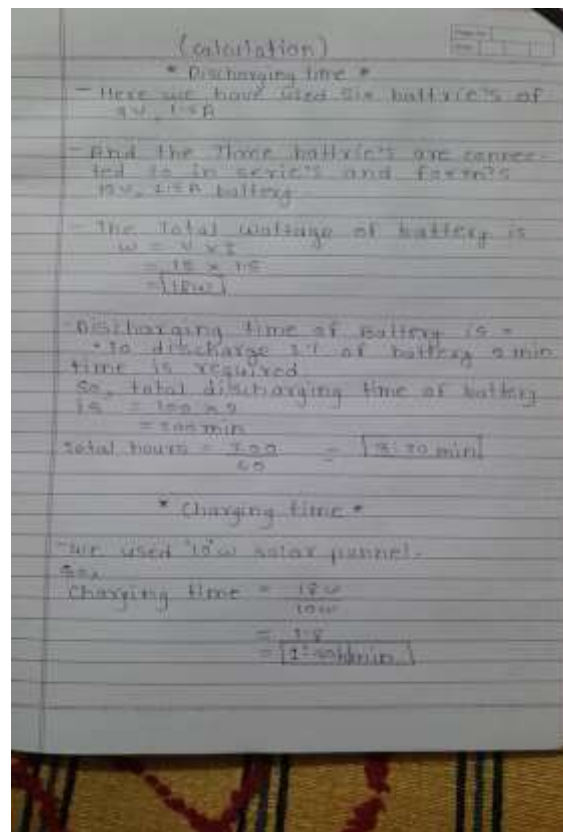 (calculation)
* Discharging time *
- Here we have used six battrie's of
1.5A
- And the Three battrie's are connec-
ted in serie's and form's
battery.
- The Total wattage of battery is
w = v x I
= x 1.5
= 18w
- Discharging time of Battery is =
• To discharge 1% of battery 2 min
time is required
So, total discharging time of battery
is = 100 x 2
= 200 min
Total hours = 200
60
= 3:20 min
* Charging time *
- We used "10"w solar pannel.
So,
Charging time = 18w
10w
= 1.8